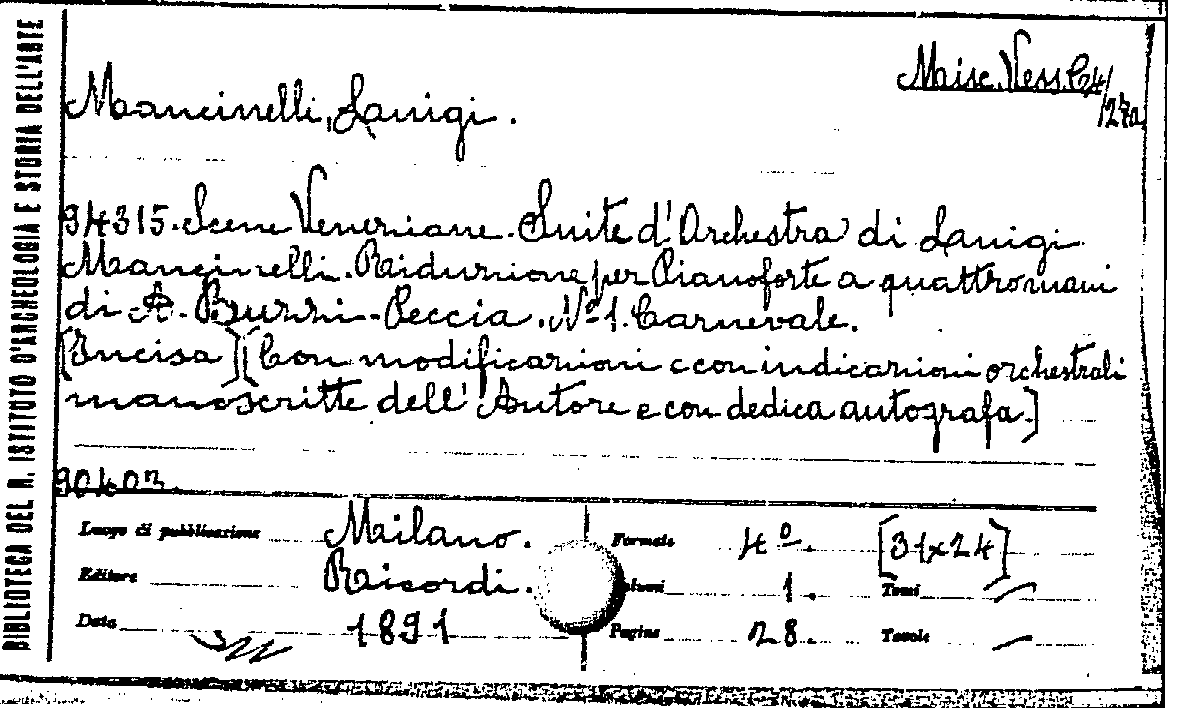 BIBLIOTECA DEL R. ISTITUTO D'ARCHEOLOGIA E STORIA DELL'ARTE
Misc. Vess. C24/
/27a
Mancinelli, Luigi.
94315. Scene Veneziane. Suite d'Orchestra di Luigi
Mancinelli. Riduzione per Pianoforte a quattro mani
di A. Buzzi-Peccia. Nº 1. Carnevale.
[Incisa] [Con modificazioni e con indicazioni orchestrali
manoscritte dell'Autore e con dedica autografa.]
Luogo di pubblicazione Milano. Formato 4º. [31x24]
Editore Ricordi. Volumi 1. Tomi
Data 1891 Pagine 28. Tavole